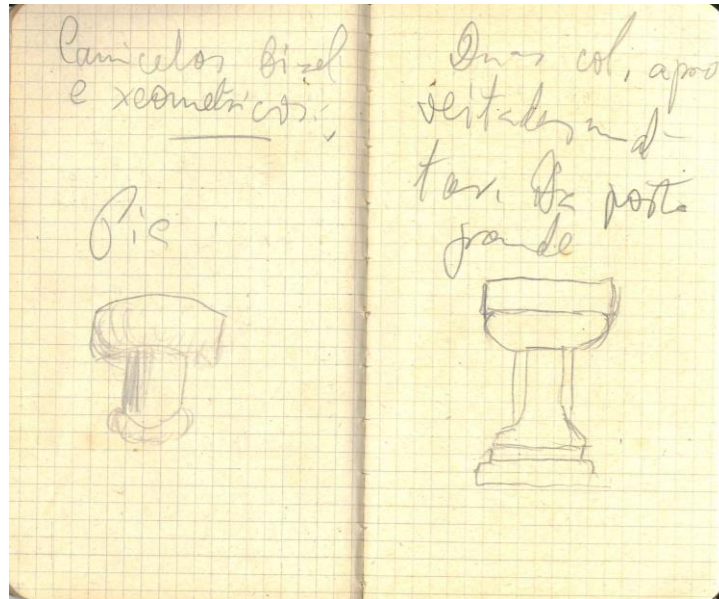 Canicelos bisel
e xeometricos.
Pia
Duas col. apro
veitadas no al-
tar. Da porta
grande